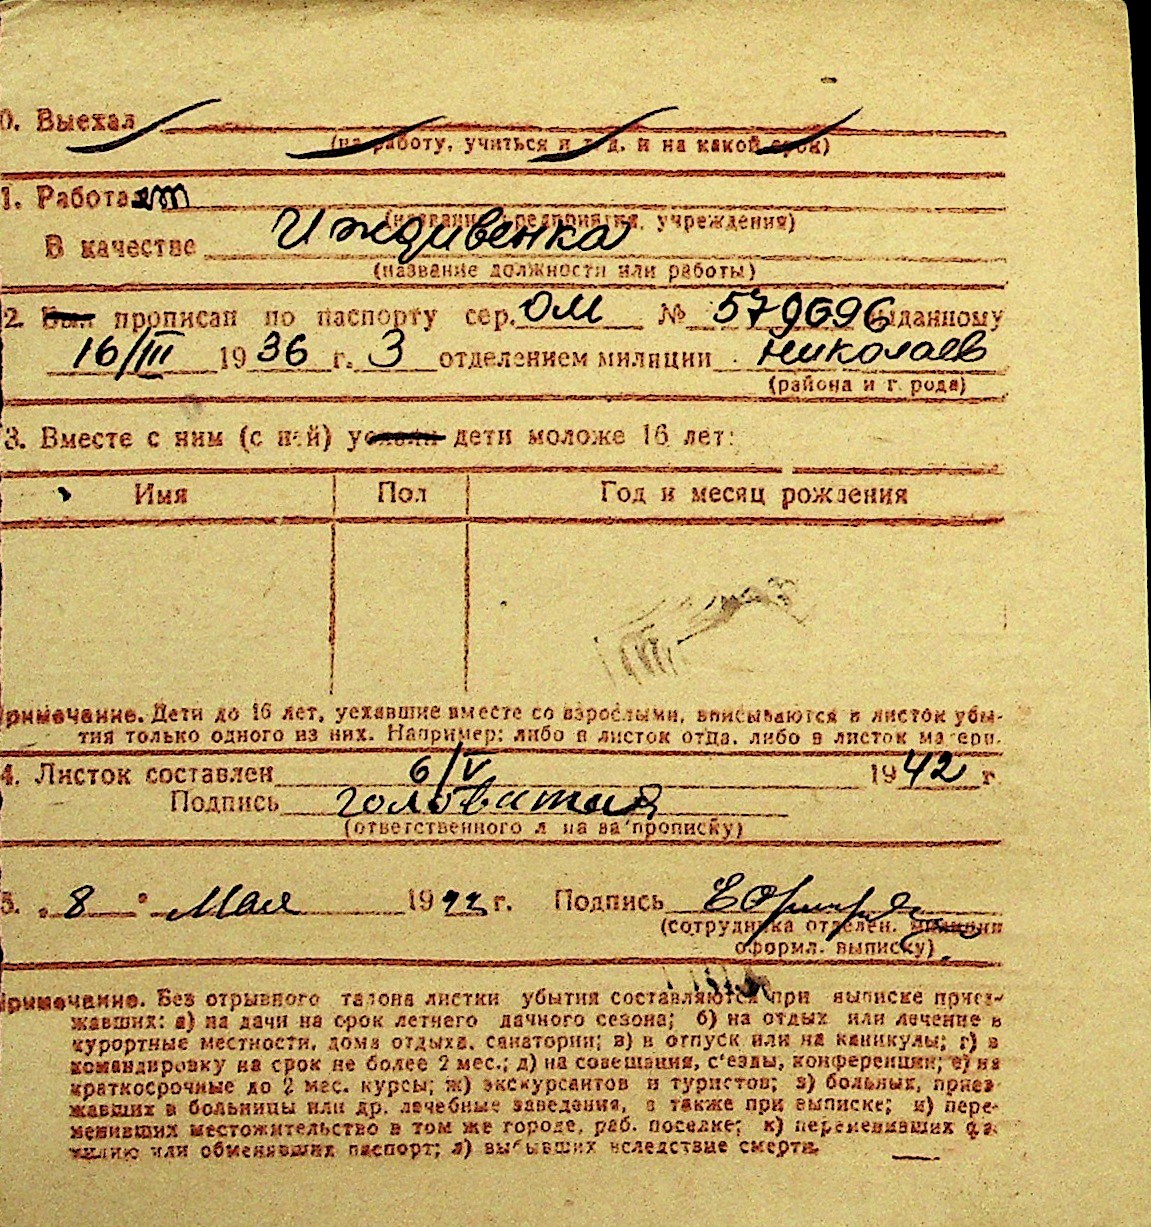 0. Выехал
(на работу, учиться и т. д. и на какой срок)
1. Работает
(название предприятия, учреждения)
В качестве Иждивенка
(название должности или работы)
2. Был прописан по паспорту сер. ОМ № 579696 выданному
16/III 1936 г. 3 отделением милиции Николаев
(района и г. рода)
3. Вместе с ним (с ней) уехали дети моложе 16 лет:
Имя Пол Год и месяц рождения
римечание. Дети до 16 лет, уехавшие вместе со взрослыми, вписываются в листок убы-
тия только одного из них. Например: либо в листок отца, либо в листок матери.
4. Листок составлен 6/V 1942 г
Подпись Головатая
(ответственного л на за прописку)
5. „8" Мая 1942 г. Подпись
(сотрудника отделен. милиции
оформл. выписку)
римечание. Без отрывного талона листки убытия составляются при выписке приез-
жавших: а) на дачи на срок летнего дачного сезона; б) на отдых или лечение в
курортные местности, дома отдыха, санатории; в) в отпуск или на каникулы; г) в
командировку на срок не более 2 мес.; д) на совещания, с'езды, конференции; е) на
краткосрочные до 2 мес. курсы; ж) экскурсантов и туристов; з) больных, приез
жавших в больницы или др. лечебные заведения, а также при выписке; и) пере-
менивших местожительство в том же городе, раб. поселке; к) переменивших фа-
милию или обменявших паспорт; л) выбывших вследствие смерти.